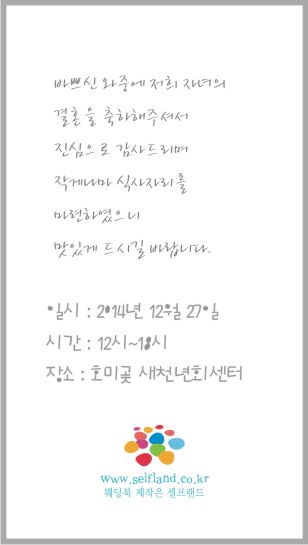 바쁘신 와중에 저희 자녀의
결혼을 축하해주셔서
진심으로 감사드리며
작게나마 식사자리를
마련하였으니
맛있게 드시길 바랍니다.
일시 : 2014년 12월 27일
시간 : 12시~18시
장소 : 호미곶 새천년회센터
www.selfland.co.kr
웨딩북 제작은 셀프랜드